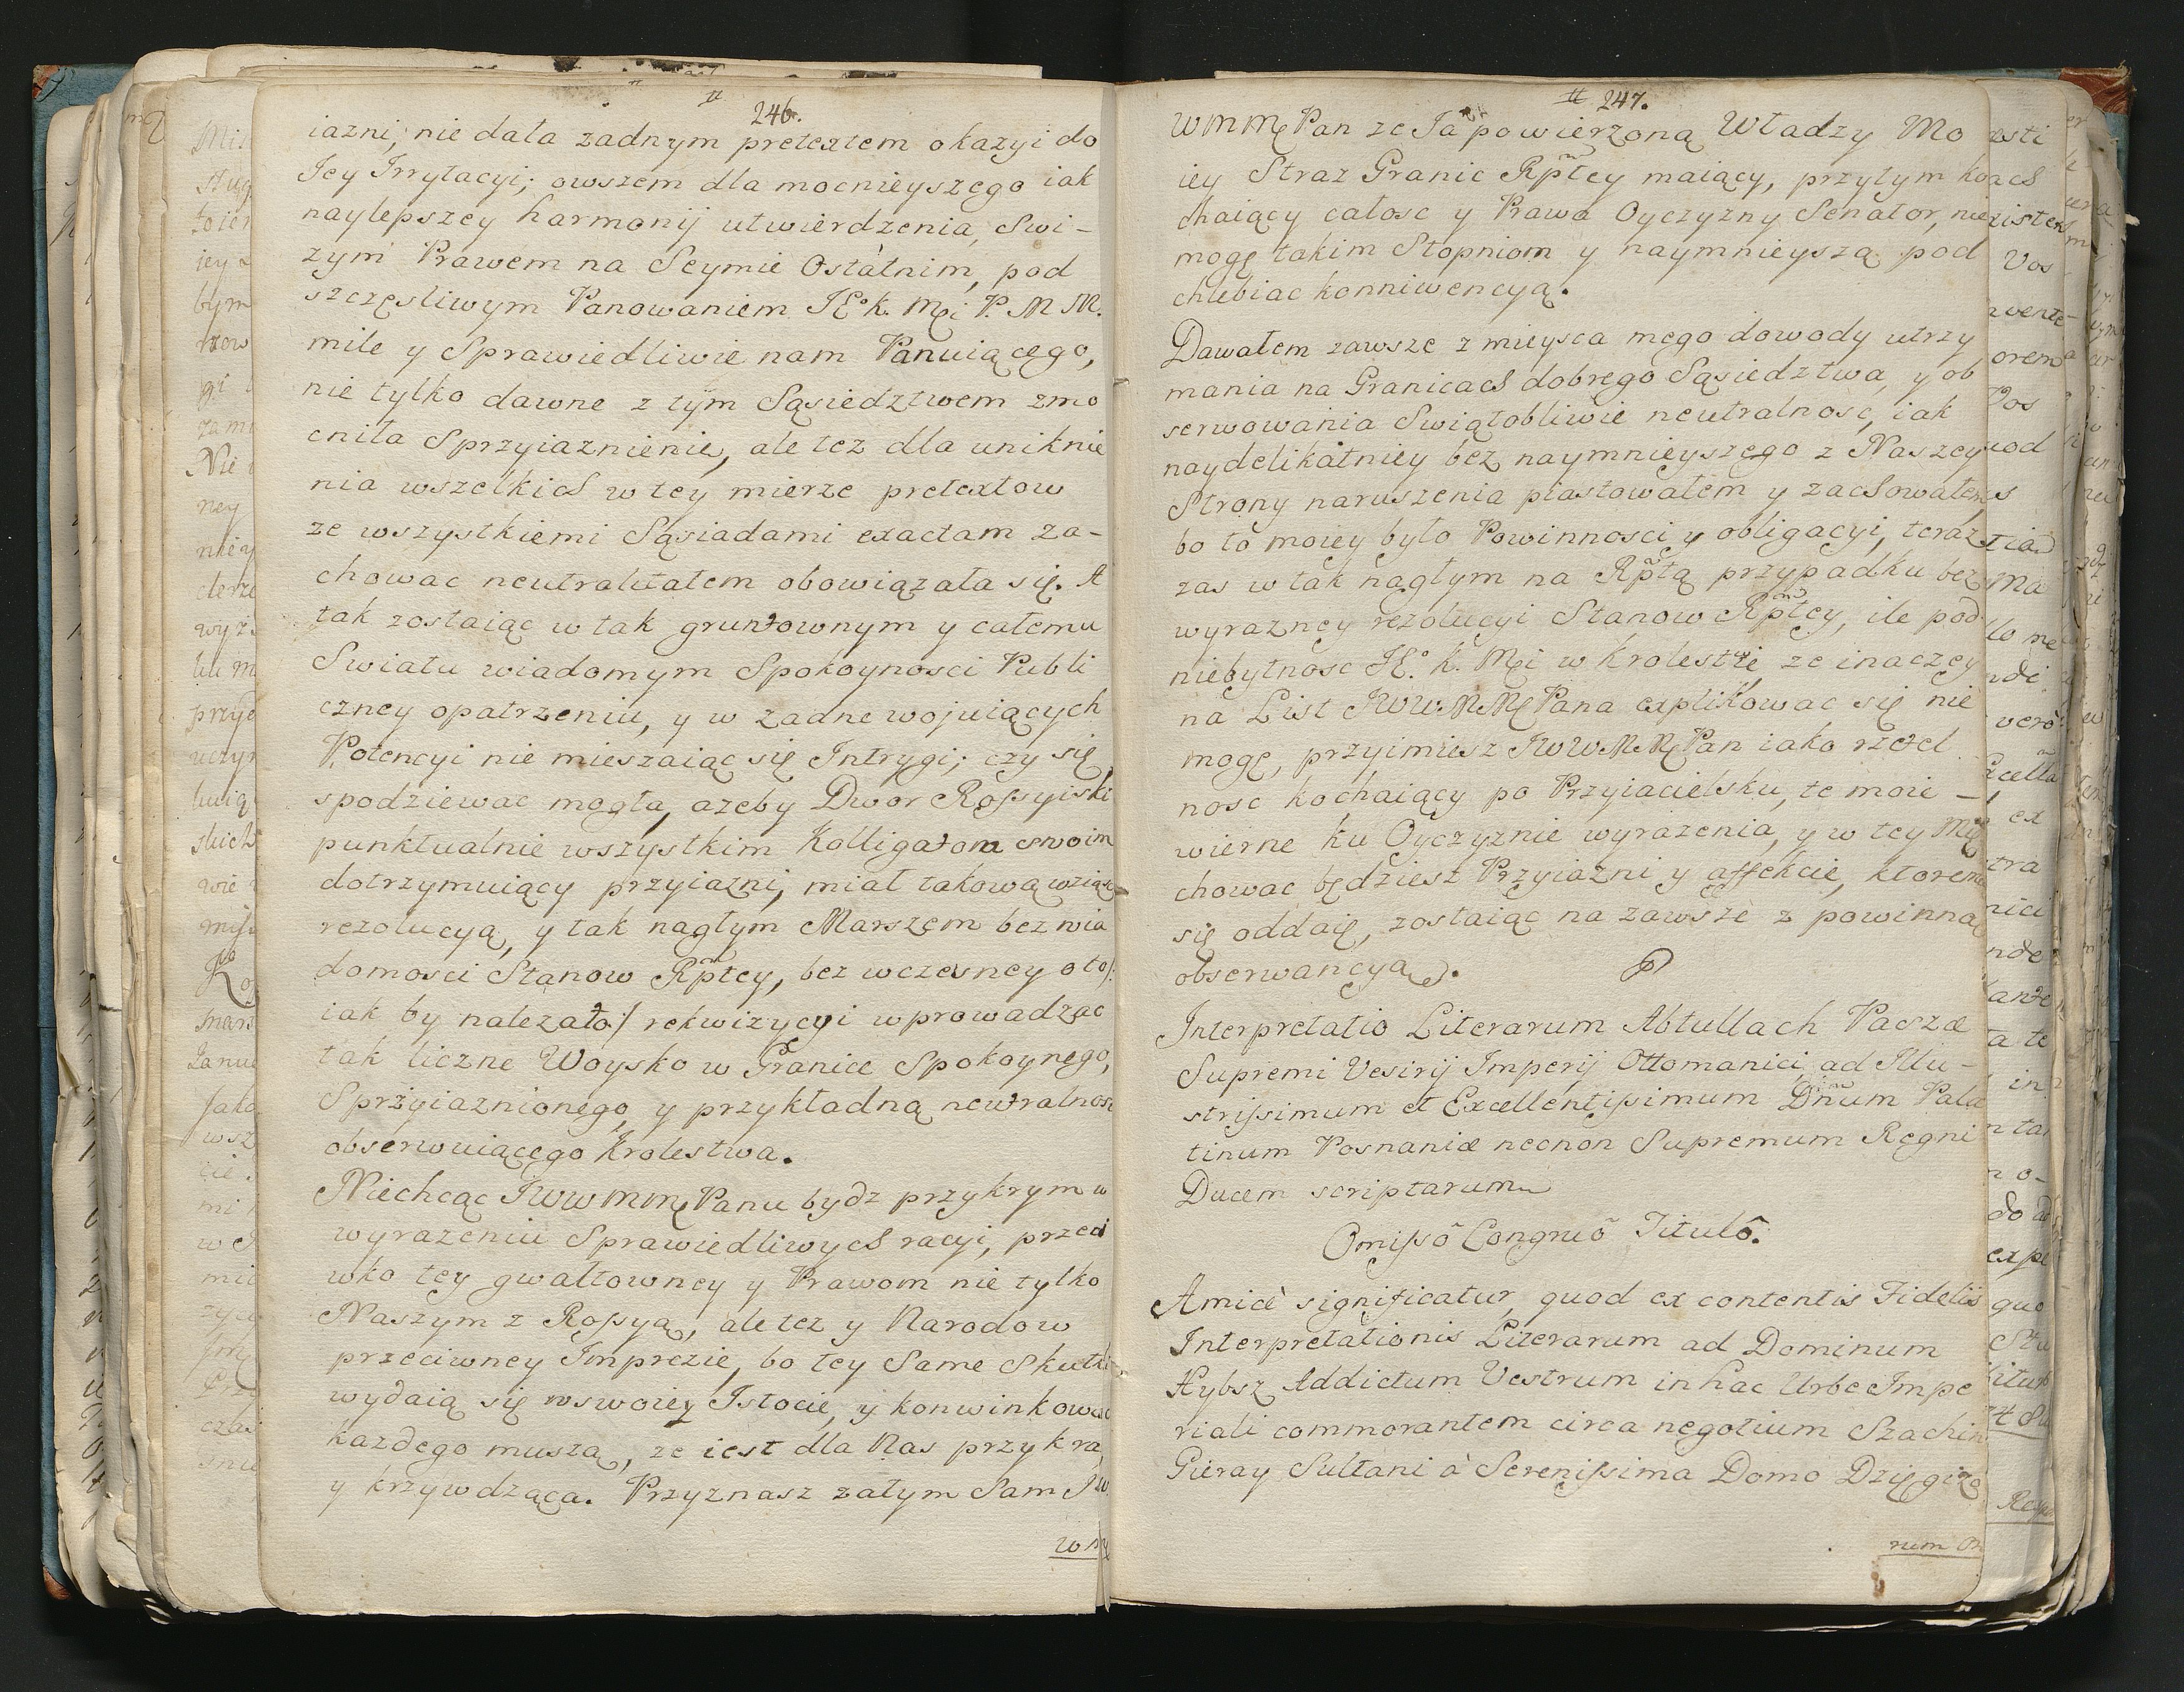 246.
iazni, nie dała zadnym pretextem okazyi do
Jey Irrytacyi; owszem dla mocnieyszego iak
naylepszey harmonij utwierdzenia, Swi-
zym Prawem na Seymie Ostatnim, pod
szczęsliwym Panowaniem JE° K. Mci P. M M.
mile y Sprawiedliwie nam Panuiącego,
nie tylko dawne z tym Sąsiedztwem zmo
cniła Sprzyiaznienie, ale tez dla uniknie
nia wszelkich w tey mierze pretextow
ze wszystkiemi Sąsiadami exactam za-
chowac neutralitatem obowiązała się. A
tak zostaiąc w tak gruntownym y całemu
Swiatu wiadomym Spokoynosci Publi
czney opatrzeniu, y w zadne wojuiących
Potencyi nie mieszaiąc się Intrygi; czy się
spodziewac mogła, azeby Dwor Rossyiski
punktualnie wszystkim Kolligatom swoim
dotrzymuiący przyiazni, miał takową wziąsc
rezolucyą, y tak nagłym Marszem bez wia
domosci Stanow Rptey, bez wczesney oto/:
iak by nalezało:/ rekwizycyi wprowadzac
tak liczne Woysko w Granice Spokoynego,
Sprzyiaznionego, y przykładną neutralnosc
obserwuiącego Krolestwa.
Niechcąc JWWMM Panu bydz przykrym w
wyrazeniu Sprawiedliwych racyi, przeci
wko tey gwałtowney y Prawom nie tylko
Naszym z Rossyą, ale tez y Narodow
przeciwney Imprezie, bo tey Same Skutki
wydaią się w swoiey Istocie, y konwinkowac
kazdego muszą, ze iest dla Nas przykra
y krzywdząca. Przyznasz zatym Sam JW.
247.
WMM Pan ze Ja powierzoną Władzy Mo
iey Straz Granic Rptey maiący, przytym ko
chaiący całosc y Prawa Oyczyzny Senator, nie
mogę takim Stopniom y naymnieyszą pod
chlebiac konniwencyą.
Dawałem zawsze z mieysca mego dowody utrzy
mania na Granicach dobrego Sąsiedztwa, y ob
serwowania Swiątobliwie neutralnosc, iak
naydelikatniey bez naymnieyszego z Naszey
Strony naruszenia piastowałem y zachowałem
bo to moiey było Powinnosci y obligacyi, teraz
zas w tak nagłym na Rptą przypadku bez
wyrazney rezolucyi Stanow Rptey, ile pod
niebytnosc JE° K. Mci w Krolestwie, ze inaczey
na List JWWMM Pana explikowac się nie
mogę, przyimiesz JWWMM Pan iako rzetel
nosc kochaiący po Przyiacielsku, te moie -
wierne ku Oyczyznie wyrazenia, y w tey Mię
chowac będziesz Przyiazni y affekcie, ktorem
się oddaię, zostaiąc na zawsze z powinną
obserwancyą.
Interpretatio Literarum Abtullach Paszæ
Supremi Vesirij Imperij Ottomanici, ad Illu-
strissimum et Excellentissimum Dnum Pala
tinum Posnaniæ necnon Supremum Regni
Ducem scriptarum
Omissô Congruô Titulô.
Amicè significatur, quod ex contentis Fidelis
Interpretationis Literarum ad Dominum
Hybsz Addictum Vestrum in hac Urbe Impe
riali commorantem circa negotium Szachin
Gieray Sultani à Serenissima Domo Dzięgizo
num